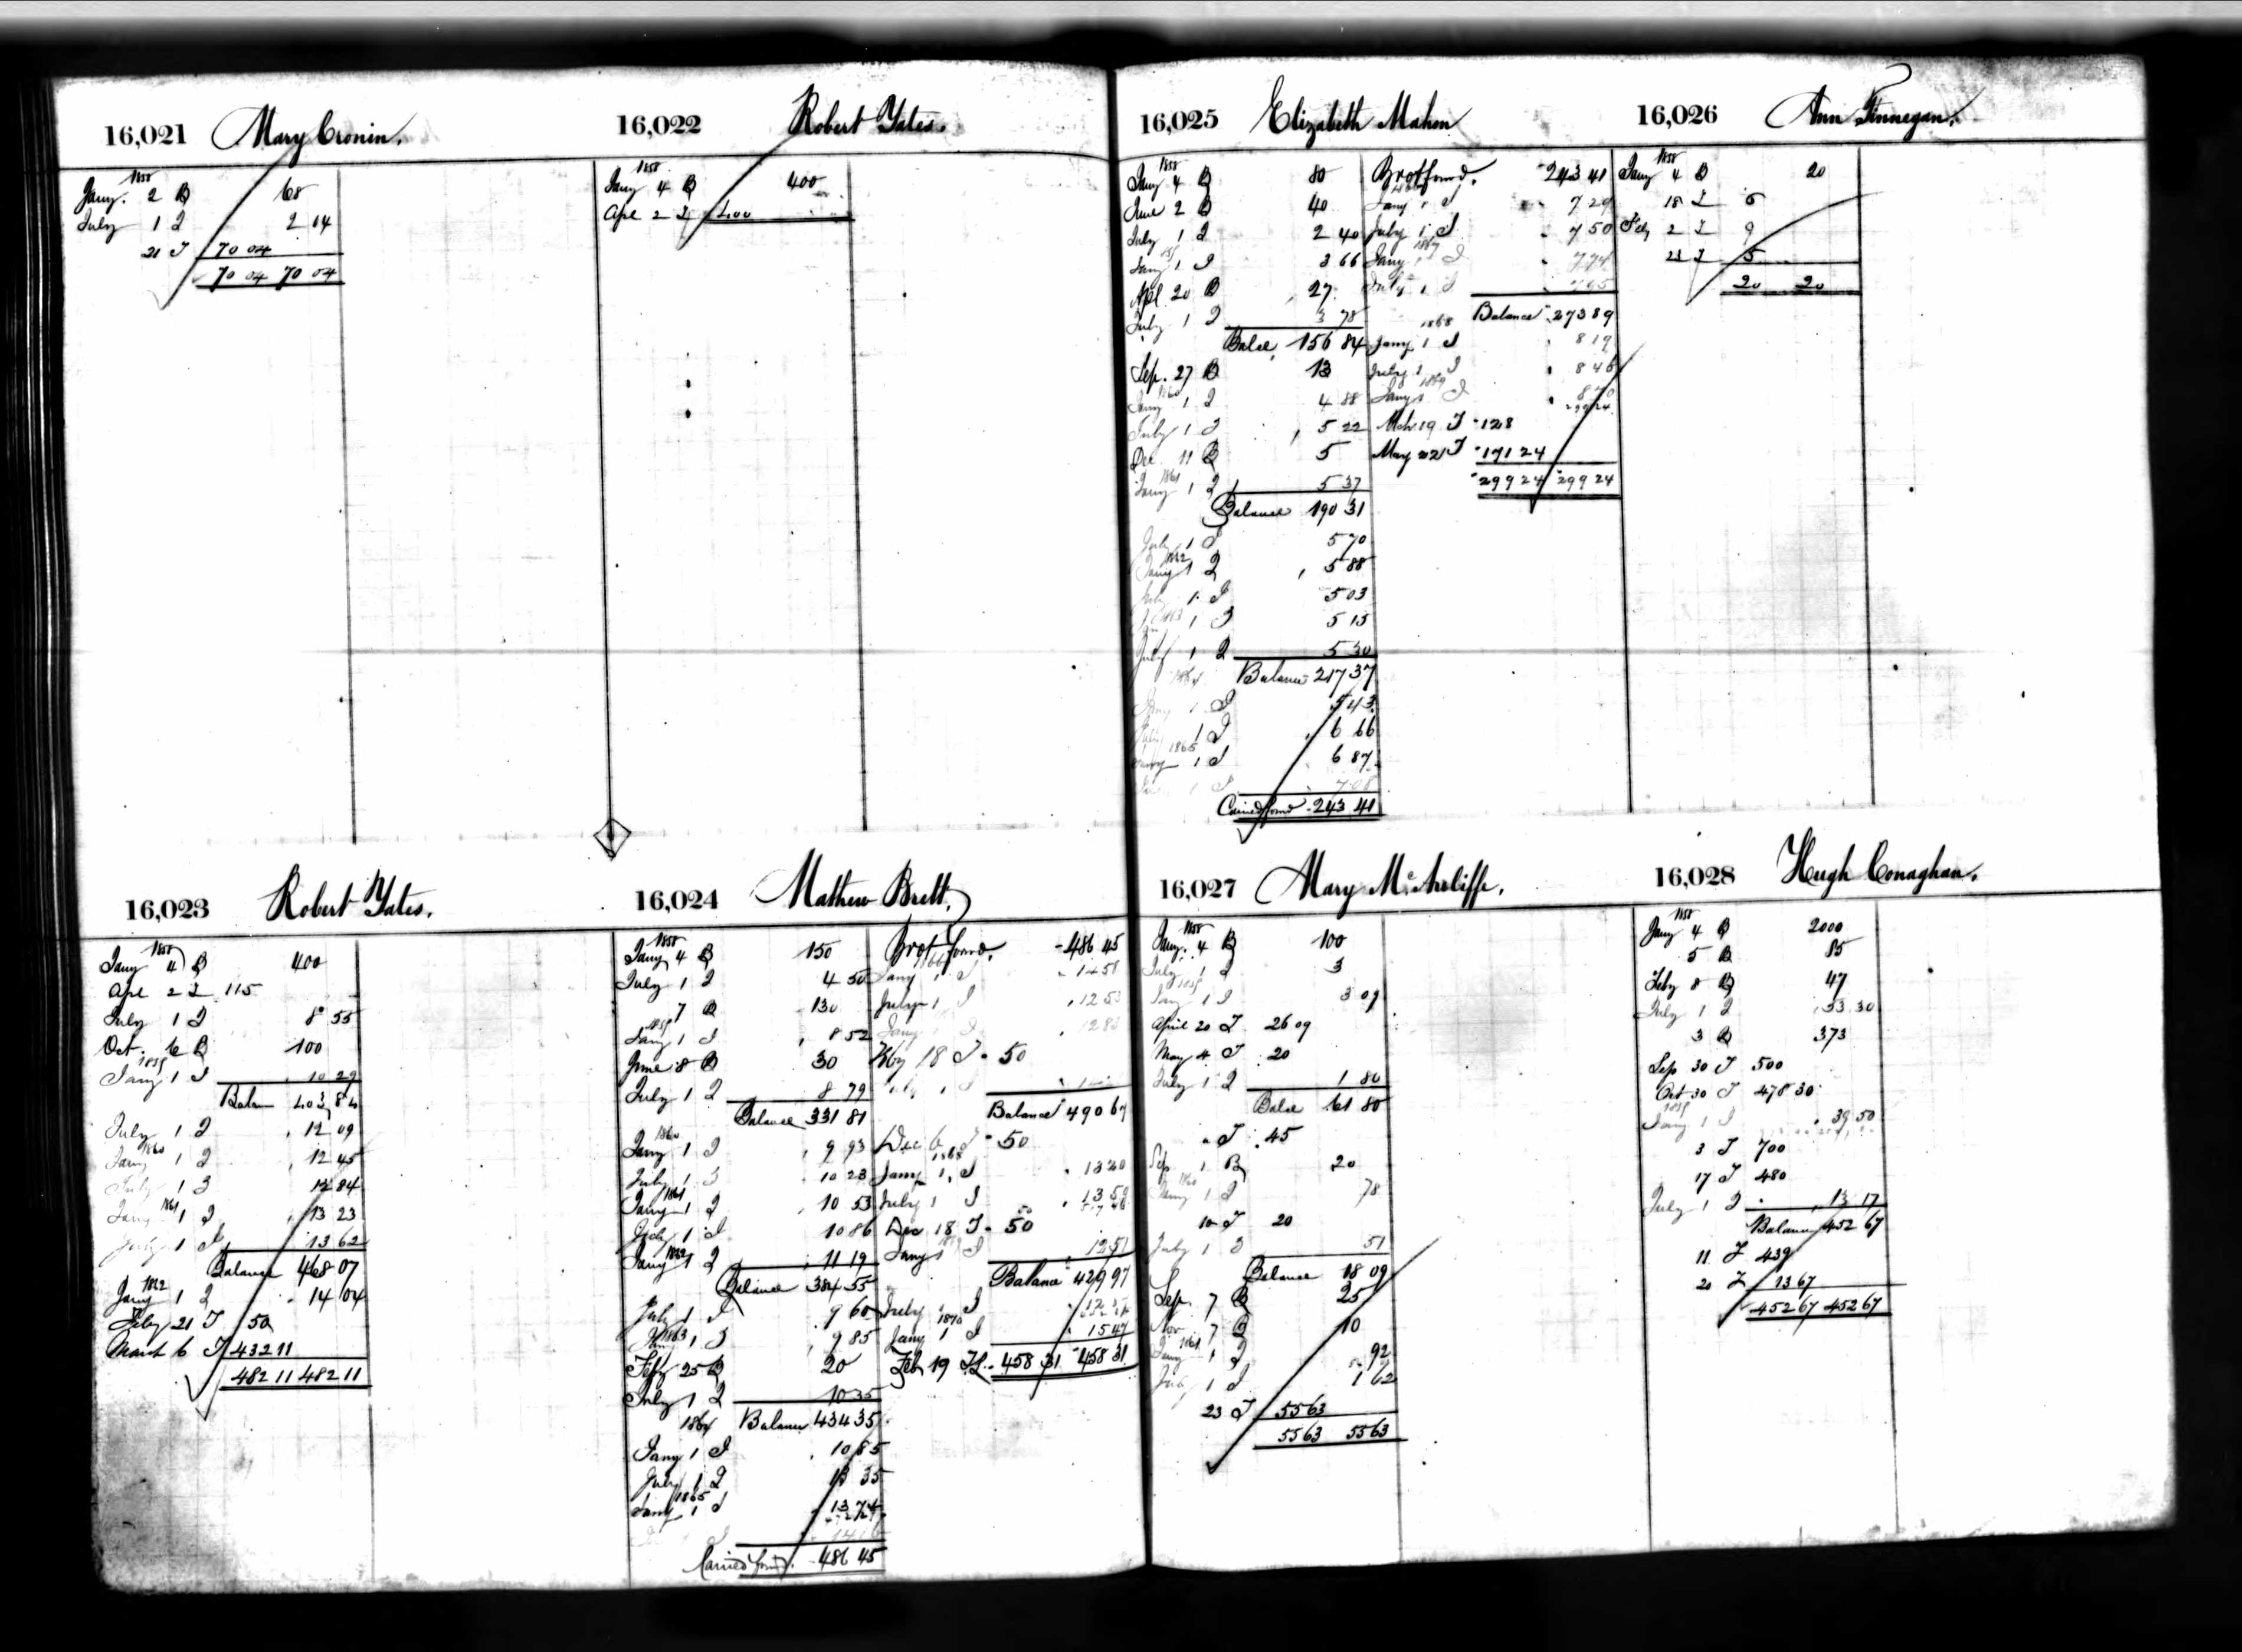 16,021 Mary Cronin.
1858
Jany. 2 B 68
July 1 I 2 04
21 T 70 04
70 04 70 04
16,022 Robert Yates.
1858
Jany 4 B 400
Apl 2 T 400
16,023 Robert Yates.
1858
Jany 4 B 400
Apl 2 T 115
July 1 I 8 55
Oct. 6 B 100
1859
Jany 1 I 10 29
Balan 403 84
July 1 I 12 09
1860
Jany 1 I 12 45
July 1 I 12 84
1861
Jany 1 I 13 23
July 1 I 13 62
Balance 468 07
1862
Jany 1 I 14 04
Feby 21 T 50
March 6 T 432 11
482 11 482 11
16,024 Mathew Brett.
1858
Jany 4 B 150
July 1 I 4 50
7 B 130
1859
Jany 1 I 8 52
June 8 B 30
July 1 I 8 79
Balance 331 81
1860
Jany 1 I 9 93
July 1 I 10 23
1861
Jany 1 I 10 53
July 1 I 10 86
1862
Jany 1 I 11 19
Balance 384 55
July 1 I 9 60
1863
Jany 1 I 9 85
Feby 25 B 20
July 1 I 10 35
1864 Balance 434 35
Jany 1 I 10 85
July 1 I 13 35
1865
Jany 1 I 13 74
Carried forwd. 486 45
Brot forwd. 486 45
Jany 1 I 14 58
July 1 I
Jany 1 I
18 T 50
July 1 I
Balance 490 67
Dec 6 T 50
1868
Jany 1 I 13 20
July 1 I 13 59
Dec 18 T 50
Jany 1 I 12 51
Balance 429 97
July 1 I
1870
Jany 1 I 15 47
Feb 19 T 458 31 458 31
16,025 Elizabeth Mahon
1858
Jany 4 B 80
June 2 B 40
July 1 I 2 40
Jany 1 I 3 66
Apl. 20 B 27
July 1 I 3 78
Balce 156 84
Sep. 27 B 13
1860
Jany 1 I 4 88
July 1 I 5 22
Dec 11 B 5
1861
Jany 1 I 5 37
Balance 190 31
July 1 I 5 70
1862
Jany 1 I 5 88
July 1 I 5 03
1863
Jan 1 I 5 15
July 1 I 5 30
1864 Balance 217 37
Jany 1 I 5 43
July 1 I 6 66
1865
Jany 1 I 6 87
7 08
Carried forwd 243 41
Brot forwd. 243 41
Jany 1 I 7 29
July 1 I 7 50
1867
Jany 1 I 7 74
July 1 I 7 95
Balance 273 89
1868
Jany 1 I 8 19
July 1 I 8 46
1869
Jany 1 I 8 70
299 24
Mch 19 T 128
May 22 T 171 24
299 24 299 24
16,026 Ann Finnegan.
1858
Jany 4 B 20
18 T 6
Feby 2 T 9
23 T 5
20 20
16,027 Mary McAuliffe.
1858
Jany. 4 B 100
July 1 I 3
1859
Jany 1 I 3 09
April 20 T 26 09
May 4 T 20
July 1 I 1 80
Balce 61 80
T 45
Sep 1 B 20
1860
Jany 1 I 78
10 T 20
July 1 I 51
Balance 18 09
Sep. 7 B 25
Nov 7 B 10
1861
Jany 1 I 92
July 1 I 1 62
23 T 55 63
55 63 55 63
16,028 Hugh Conaghan.
1858
Jany 4 B 2000
5 B 85
Feby 8 B 47
July 1 I 33 30
3 B 373
Sep 30 T 500
Oct 30 T 478 30
1859
Jany 1 I 39 50
3 T 700
17 T 480
July 1 I 13 17
Balance 452 67
11 T 439
20 T 13 67
452 67 452 67